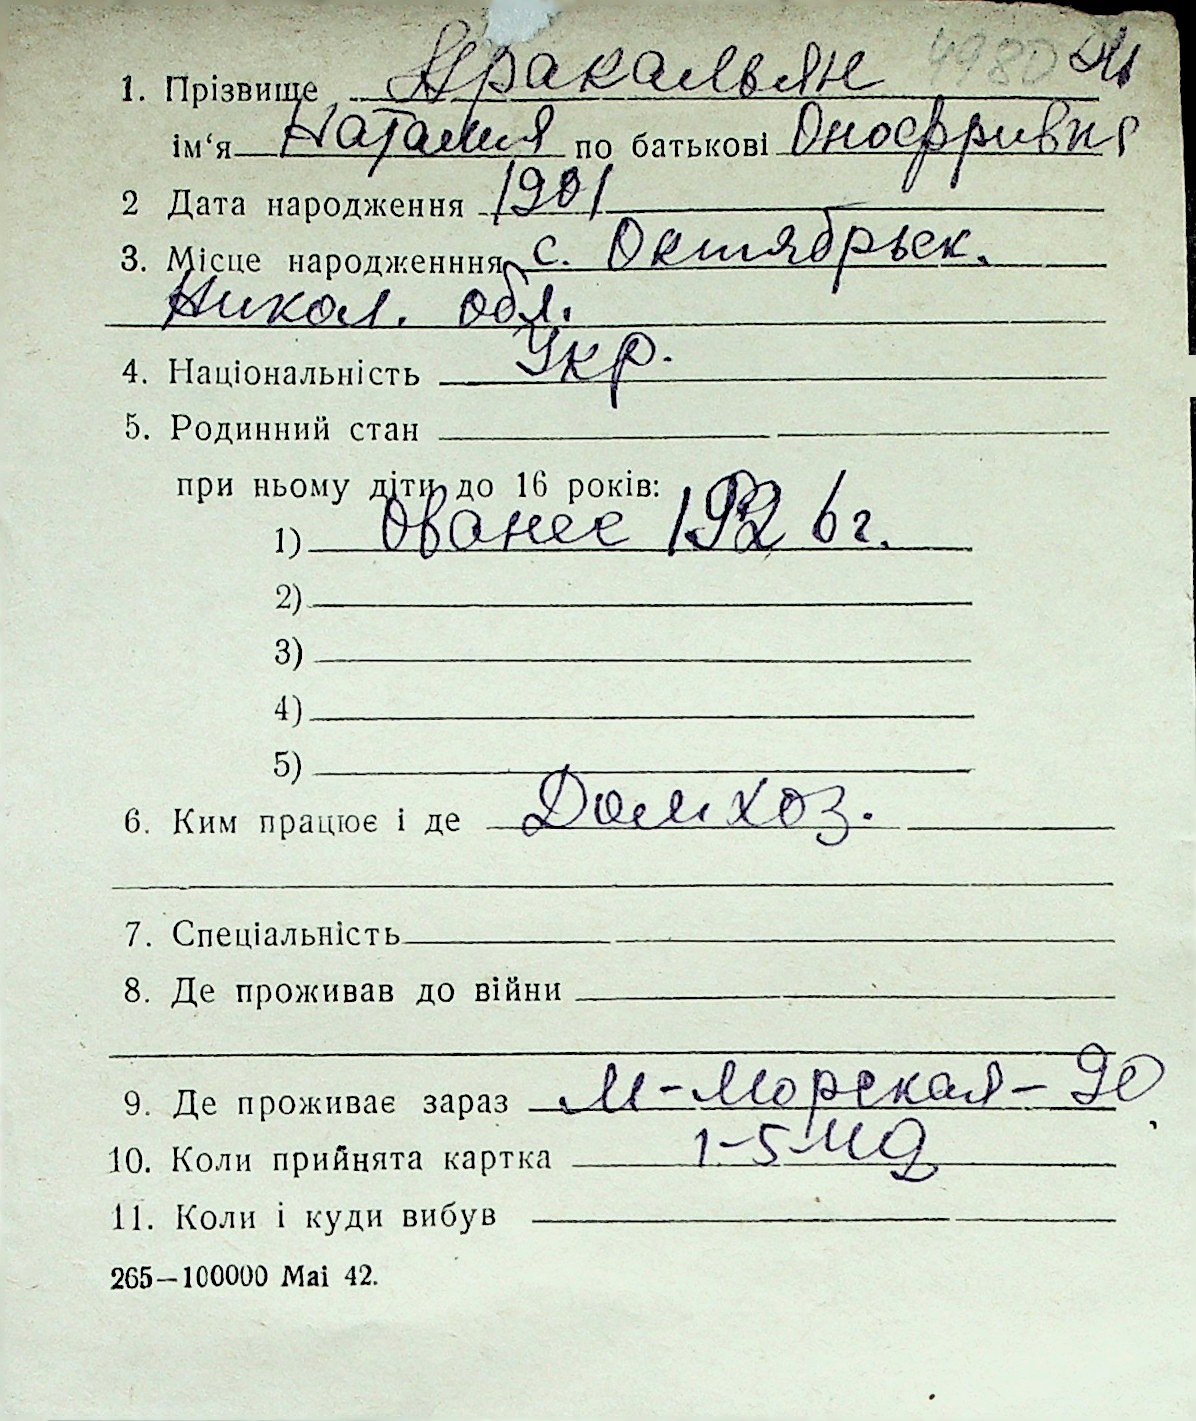 4980
1. Прізвище Аракальян
ім‘я Наталия по батькові Оноффривна
2 Дата народження 1901
3. Місце народженння с. Октябрьск.
Никол. обл.
4. Національність Укр.
5. Родинний стан
при ньому діти до 16 років:
1) Ованес 1926 г.
2)
3)
4)
5)
6. Ким працює і де Домхоз.
7. Спеціальність
8. Де проживав до війни
9. Де проживає зараз М-Морская-90
10. Коли прийнята картка
11. Коли і куди вибув
265—100000 Mai 42.